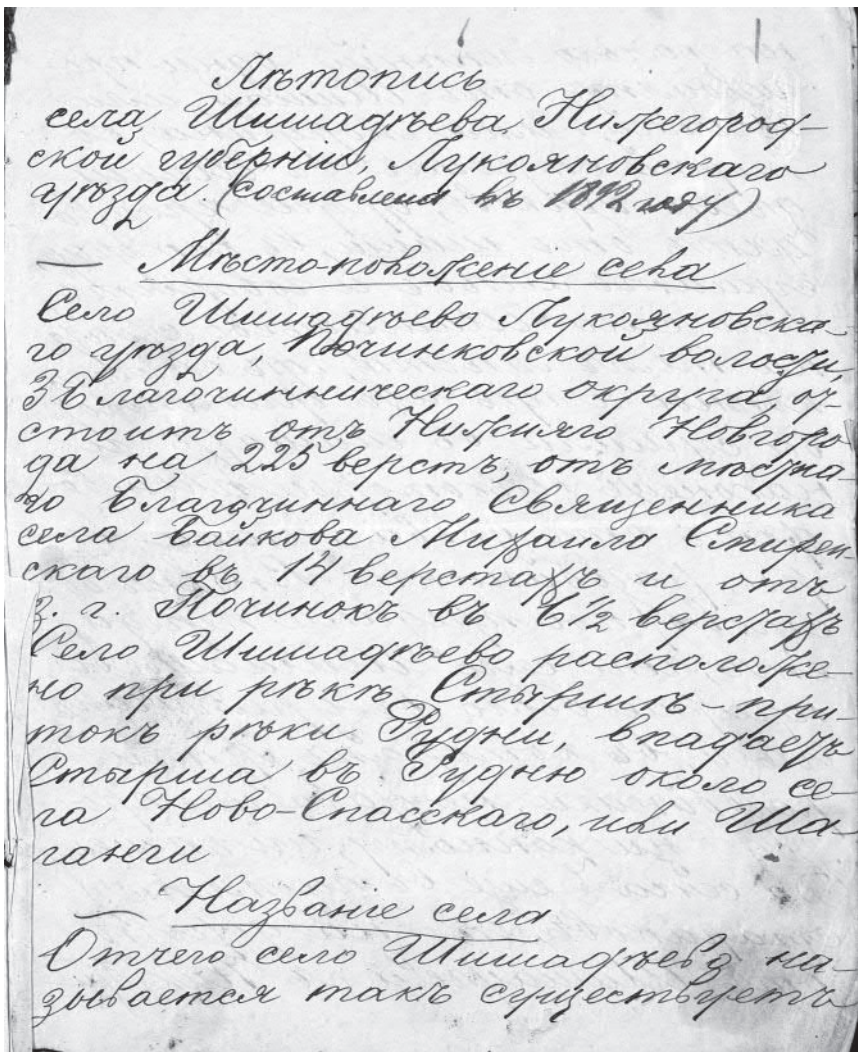 Лѣтопись
села Шишадѣева, Нижегород-
ской губерніи, Лукояновскаго
уѣзда. (составлена въ 1892 году)
— Мѣсто-положеніе села
Село Шишадѣево Лукояновска-
го уѣзда, Починковской волости,
3 Благочинническаго округа, от-
стоитъ отъ Нижняго Новгоро-
да на 225 верстъ, отъ мѣстна-
го Благочиннаго Священника
села Байкова Михаила Смирен-
скаго въ 14 верстахъ и отъ
з. г. Починокъ въ 6 1/2 верстахъ
Село Шишадѣево расположе-
но при рѣкѣ Стыршѣ - при-
токъ рѣки Рудни, впадаетъ
Стырша въ Рудню около се-
ла Ново-Спасскаго, или Ша-
танги
— Названіе села
Отчего село Шишадѣево на-
зывается такъ существуетъ